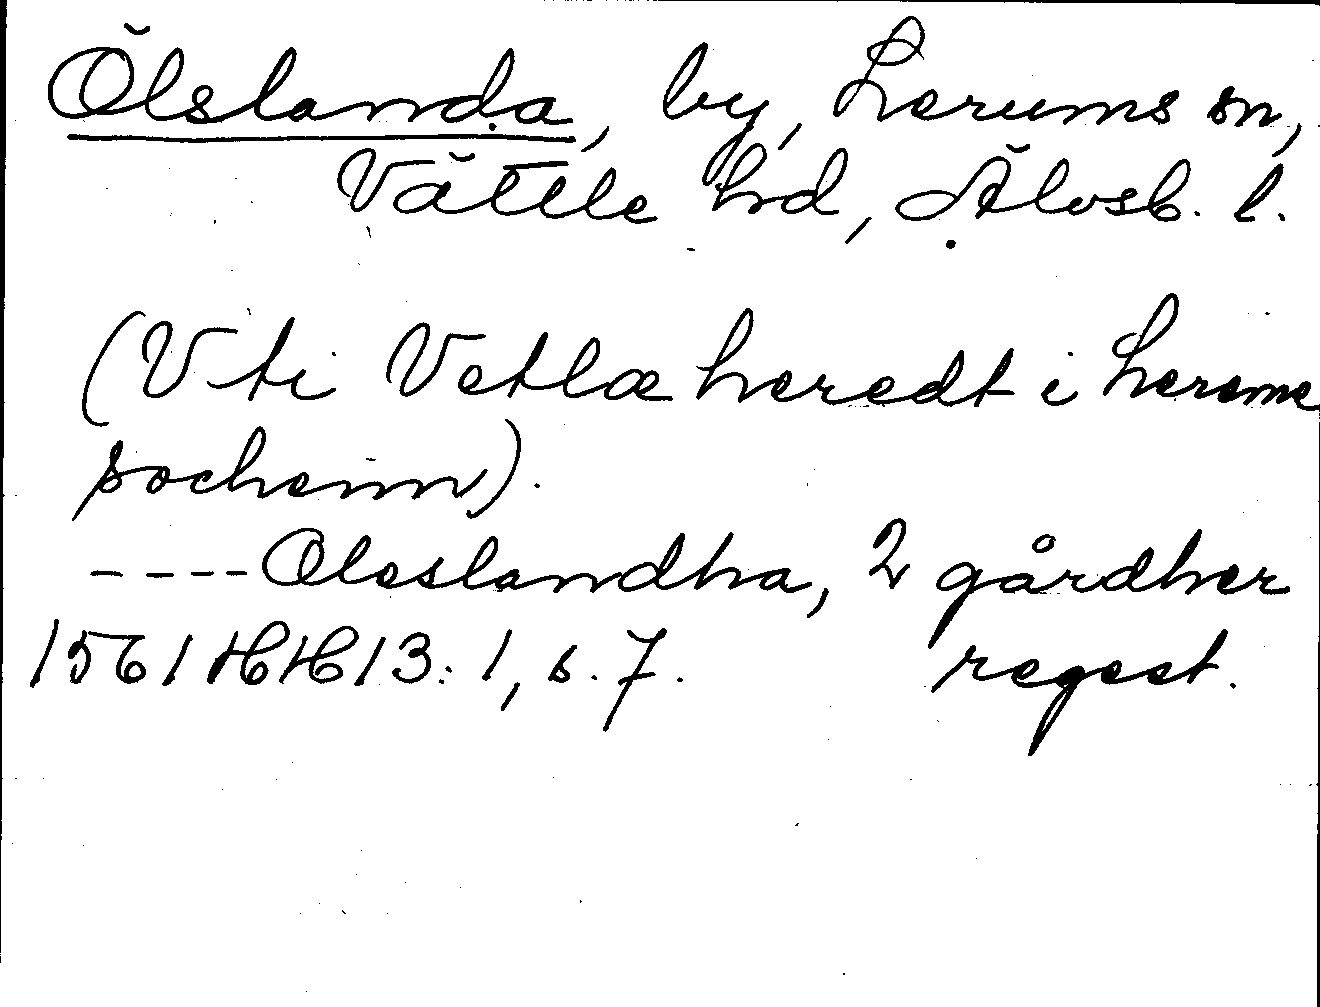 Ölslanda, by, Lerums sn,
Vättle hd, Älvsb. l.
(Vti Vetlæ heredt i Lereme
sochenn).
----Oleslandha, 2 gårdher
1561 HH 13:1, s. 7. regest.